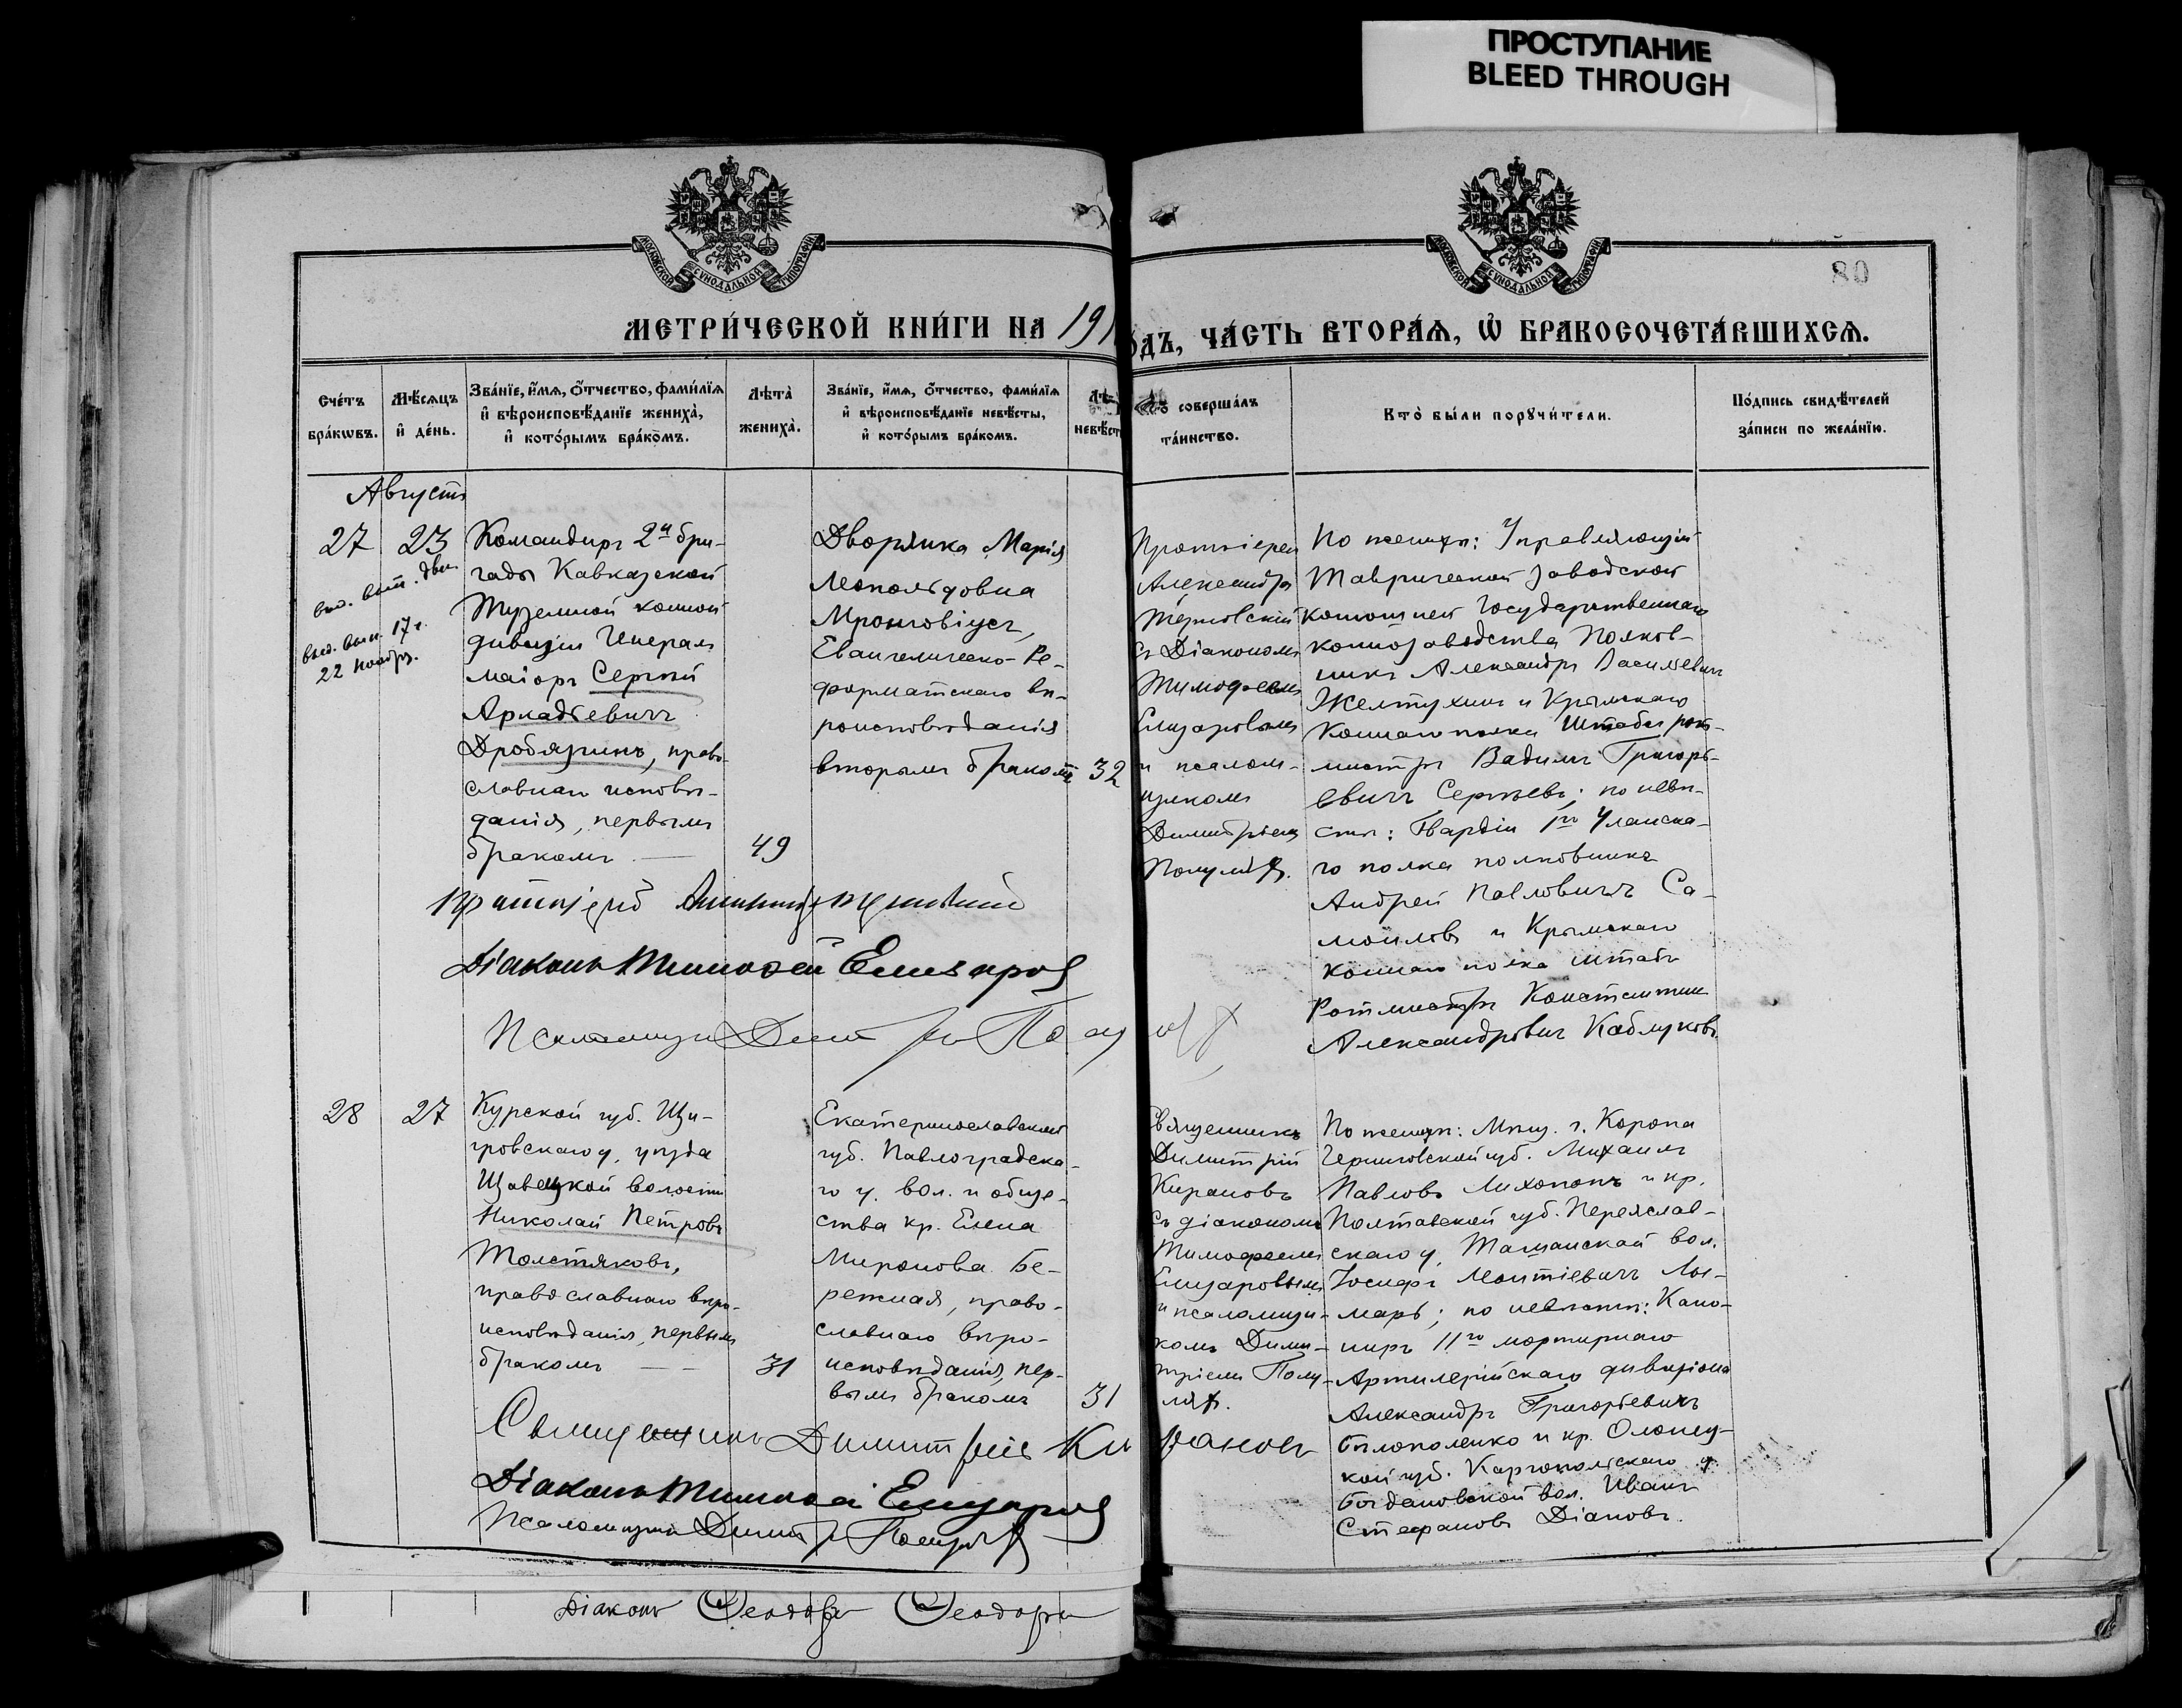 ПРОСТУПАНИЕ
BLEED THROUGH
МОСКОВСКОЙ СѴНОДАЛЬНОЙ ТИПОГРАФІИ
МОСКОВСКОЙ СѴНОДАЛЬНОЙ ТИПОГРАФІИ
80
МЕТРИ́ЧЕСКОЙ КНИ́ГИ НА 191
ОДЪ, ЧА́СТЬ ВТОРА́Я, Ѿ БРАКОСОЧЕТА́ВШИХСЯ.
Сче́тъ
бра́кѡвъ.
Мѣ́сяцъ
и҆ де́нь.
Зва́нїе, и҆́мя, ѻ҆́тчество, фами́лїя
и҆ вѣроисповѣ́данїе жениха̀,
и҆ кото́рымъ бра́комъ.
Лѣта̀
жениха̀.
Зва́нїе, и҆́мя, ѻ҆́тчество, фами́лїя
и҆ вѣроисповѣ́данїе невѣ́сты,
и҆ кото́рымъ бра́комъ.
Лѣ
невѣ́ст
то̀ соверша́лъ
та́инство.
Кто̀ бы́ли порꙋчи́тели.
По́дпись свидѣ́телей
за́писи по жела́нїю.
Августъ
27
23
выд. вып. 17 г.
22 Ноябр.
Командиръ 2й бри-
гады Кавказской
Туземной конной
дивизіи Генералъ
маіоръ Сергѣй
Аркадьевичъ
Дробязгинъ, право-
славнаго исповѣ-
данія, первымъ
бракомъ
49
Дворянка Марія
Леопольдовна
Мронговіусъ,
Евангелическо-Ре-
форматскаго вѣ-
роисповѣданія
вторымъ бракомъ
32
Протоіерей
Александръ
Терновскій
съ Діакономъ
Тимофеемъ
Елизаровымъ
и псалом-
щикомъ
Димитріемъ
Полулях.
По женихѣ: Управляющій
Таврической Заводской
конюшней Государственнаго
коннозаводства Полков-
никъ Александръ Васильевичъ
Желтухинъ и Крымскаго
Коннаго полка Штабсъ рот-
мистръ Вадимъ Григорь-
евичъ Сергѣевъ; по невѣ-
стѣ: Гвардіи 1го Уланска-
го полка полковникъ
Андрей Павловичъ Са-
мойловъ и Крымскаго
коннаго полка штабъ
Ротмистръ Константинъ
Александровичъ Каблуковъ.
Протоіерей
Діаконъ Тимофей Елизаров
Псаломщик Димитр Полулях
28
27
Курской губ. Щи-
гровскаго у, уѣзда
волости
Николай Петровъ
Толстяковъ,
православнаго вѣро-
исповѣданія, первымъ
бракомъ
31
Екатеринославской
губ. Павлоградска-
го у. вол. и обще-
ства кр. Елена
Миронова Бе-
режная, право-
славнаго вѣро-
исповѣданія, пер-
вымъ бракомъ
31
Священникъ
Димитрій
Кирановъ
съ діакономъ
Тимофеемъ
Елизаровымъ
и псаломщи-
комъ Дими-
тріемъ Полу-
лях.
По женихѣ: Мѣщ. г. Коропа
Черниговской губ. Михаилъ
Павловъ Лихопопъ и кр.
Полтавской губ. Переяслав-
скаго у, Ташанской вол.
Іосифъ Леонтіевичъ Лы-
марь; по невѣстѣ: Кано-
ниръ 11го мортирнаго
Артилерійскаго дивизіона
Александръ Григорьевичъ
Бѣлополенко и кр. Олонец-
кой губ. Каргопольскаго у
Богдановской вол. Иванъ
Стефановъ Діановъ.
Священникъ Димитрій Кирановъ
Діаконъ Тимофей Елизаров
Псаломщик Димитр Полулях
Діаконъ Ѳеодоръ